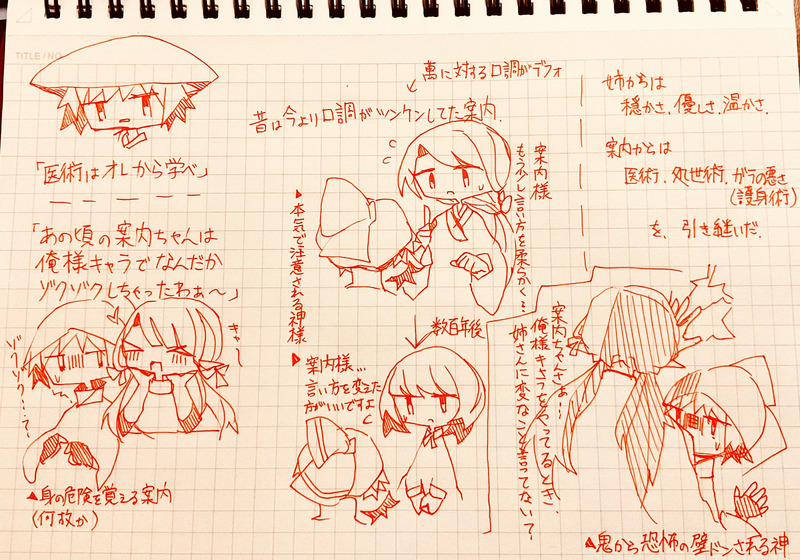 TITLE / NO.
「医術はオレから学べ」
「あの頃の案内ちゃんは
俺様キャラでなんだか
ゾクゾクしちゃったわぁ〜」
キャー
ゾクゾク…って…
▲身の危険を覚える案内
(何故か)
萬に対する口調がデフォ
昔は今より口調がツンケンしてた案内.
案内様
もう少し言い方を柔らかく…
▶本気で注意される神様
数百年後
▶案内様…
言い方を変えた
方がいいですよ
姉からは
穏かさ、優しさ、温かさ.
案内からは
医術、処世術、ガラの悪さ
(護身術)
を、引き継いだ.
案内ちゃんさぁ…
俺様キャラをやってるとき、
姉さんに変なこと言ってない？
▲鬼から恐怖の壁ドンされる神